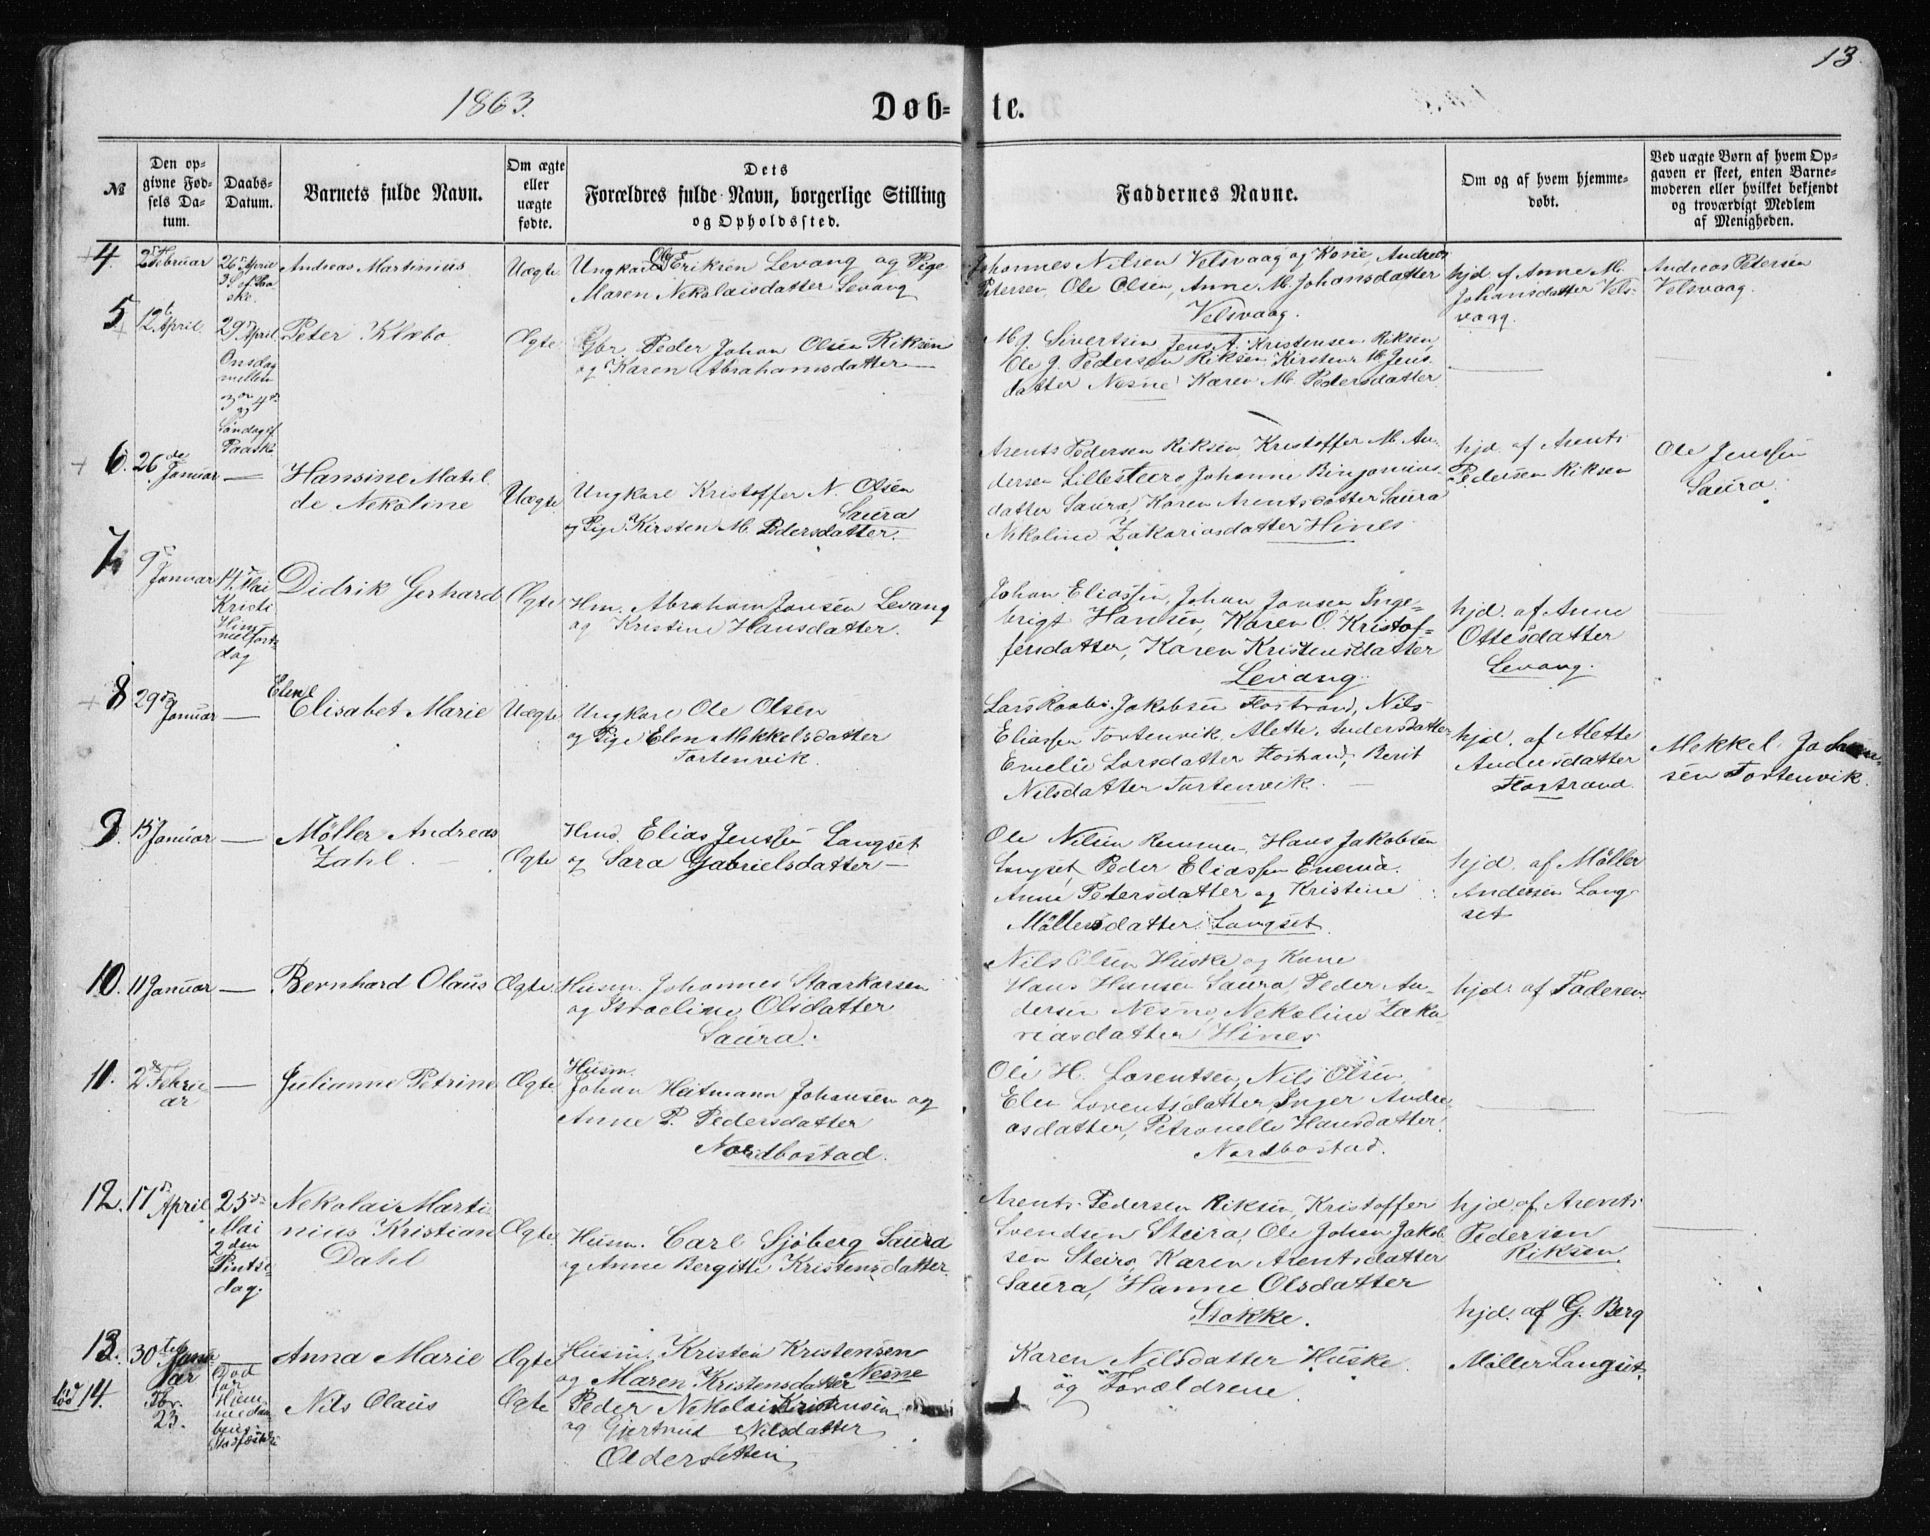 13
1863.
Døb-
te.
№
Den op-
givne Fød-
sels Da-
tum.
Daabs-
Datum.
Barnets fulde Navn.
Om ægte
eller
uægte
fødte.
Dets
Forældres fulde Navn, borgerlige Stilling
og Opholdssted.
Faddernes Navne.
Om og af hvem hjemme-
døbt.
Ved uægte Børn af hvem Op-
gaven er skeet, enten Barne-
moderen eller hvilket bekjendt
og troværdigt Medlem
af Menigheden.
4.
2den Februar
26de April
3 S. ef. Paa-
ske.
Andreas Martinius
Uægte
Ungkarl Ole Eriksen Levang og Pige
Maren Nekolaisdatter Levang
Johannes Nilsen Velsvaag og Kone, Andreas
Petersen, Ole Olsen, Anne M. Johansdatter
Velsvaag.
hjd. af Anne M.
Johansdatter Vels-
vaag.
Andreas Petersen
Velsvaag.
5
12te April.
29de April
Onsdag
mellem
3de og 4de
Søndag ef.
Paaske
Peter Klæbo
Ægte
Gbr. Peder Johan Olsen Riksen
og Karen Abrahamsdatter
M. J. Sivertsen, Jens A. Kristensen Riksen,
Ole J. Pedersen Riksen, Kirsten M. Jens-
datter Nesne, Karen M. Pedersdatter
6.
26de Januar
Hansine Matil
de Nekoline
Uægte
Ungkarl Kristoffer N. Olsen
Saura
og Pige Kirsten M. Pedersdatter.
Arents Pedersen Riksen, Kristoffer M. An-
dersen Lillesteero, Johanne Binjamins-
datter Saura, Karen Arentsdatter Saura
Nekoline Zakariasdatter Hines
hjd. af Arents
Pedersen Riksen
Ole Jenssen
Saura.
7.
9de Januar
14de Mai
Kristi
Him-
melfarts
dag
Didrik Gerhard
Ægte
Hm. Abraham Jansen Levang
og Kristine Hansdatter.
Johan Eliassen, Johan Jonsen, Inge-
brigt Hansen, Karen O. Kristof-
fersdatter, Karen Kristensdatter
Levang.
hjd. af Anne
Ottesdatter
Levang.
8
29de Januar
Elen
Elisabet Marie
Uægte
Ungkarl Ole Olsen
og Pige Elen Mekkelsdatter
Tortenvik.
Lars Raabi Jakobsen Flostrand, Nils
Eliassen Tortenvik, Alethe Andersdatter
Emelie Larsdatter Flostrand, Berit
Nilsdatter Tortenvik.
hjd. af Alethe
Andersdatter
Flostrand.
Mekkel
sen Tortenvik.
9.
15 Januar
Møller Andreas
Zahl.
Ægte
Hmd. Elias Jenssen Langset
og Sara Gabrielsdatter
Ole Nilsen Remmen, Hans Jakobsen
Langset, Peder Eliassen Enema.
Anne Petersdatter og Kristine
Møllersdatter Langset
hjd. af Møller
Andersen Lang-
set
10.
11 Januar
Bernhard Olaus
Ægte
Husm. Johannes Staarkarsen
og Israeline Olsdatter
Saura.
Nils Olsen Huske og Kone
Hans Hansen Saura, Peder An-
dersen Nesne, Nekoline Zaka
riasdatter Hines
hjd. af Faderen.
11.
2de Febru-
ar
Julianne Petrine
Ægte
Husm.
Johan Heitmann Johansen og
Anne P. Pedersdatter
Nordbostad.
Ole H. Lorentsen, Nils Olsen,
Elen Lorentsdatter, Inger Andre-
asdatter, Petronelle Hansdatter.
Nordbostad.
12.
17de April
25de
Mai
2den
Pintse-
dag.
Nekolai Marti
nius Kristian
Dahl
Ægte
Husm. Carl Sjøberg Saura
og Anne Bergitte Kristensdatter.
Arents Pedersen Riksen, Kristoffer
Svendsen Steira, Ole Johan Jakob
sen Steira, Karen Arentsdatter
Saura, Hanne Olsdatter
Stokke.
hjd. af Arents
Pedersen
Riksen.
13.
30te Janu
ar
Anna Marie
Ægte
Husm. Kristen Kristensen
Nesne
og Maren Kristensdatter
Karen Nilsdatter Huske
og Forældrene.
hjd. af G. Berg
14.
Fbr.
23.
Nils Olaus
Ægte
Peder Nekolai Kristensen
og Gjertrud Nilsdatter
Møller Langset.